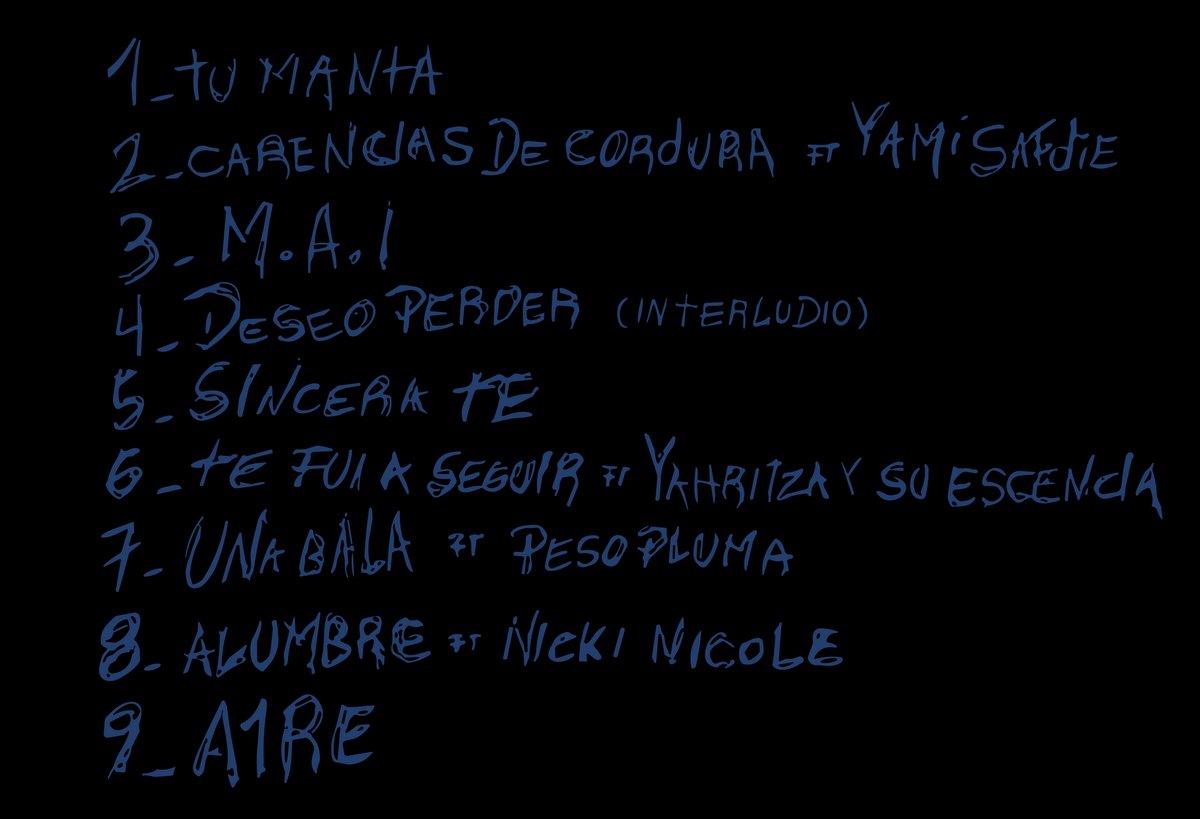 1_TU MANTA
2_CARENCIAS DE CORDURA FT YAMI SAFDIE
3_M.A.I
4_DESEO PERDER (INTERLUDIO)
5_SINCERA TE
6_TE FUI A SEGUIR FT YAHRITZA Y SU ESCENCIA
7_UNA BALA FT PESO PLUMA
8_ALUMBRE FT NICKI NICOLE
9_A1RE